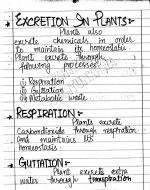 EXCRETION IN PLANTS:-
Plants also
excrete chemicals in order
to maintain its homeostasis
Plant excrete through
following processes:-
(i) Respiration
(ii) Guttation
(iii) Metabolic waste.
RESPIRATION:-
Plants excrete
Carbondioxide through respiration
and maintains its
homeostasis.
GUTTATION:-
Plant excrete extra
water through transpiration